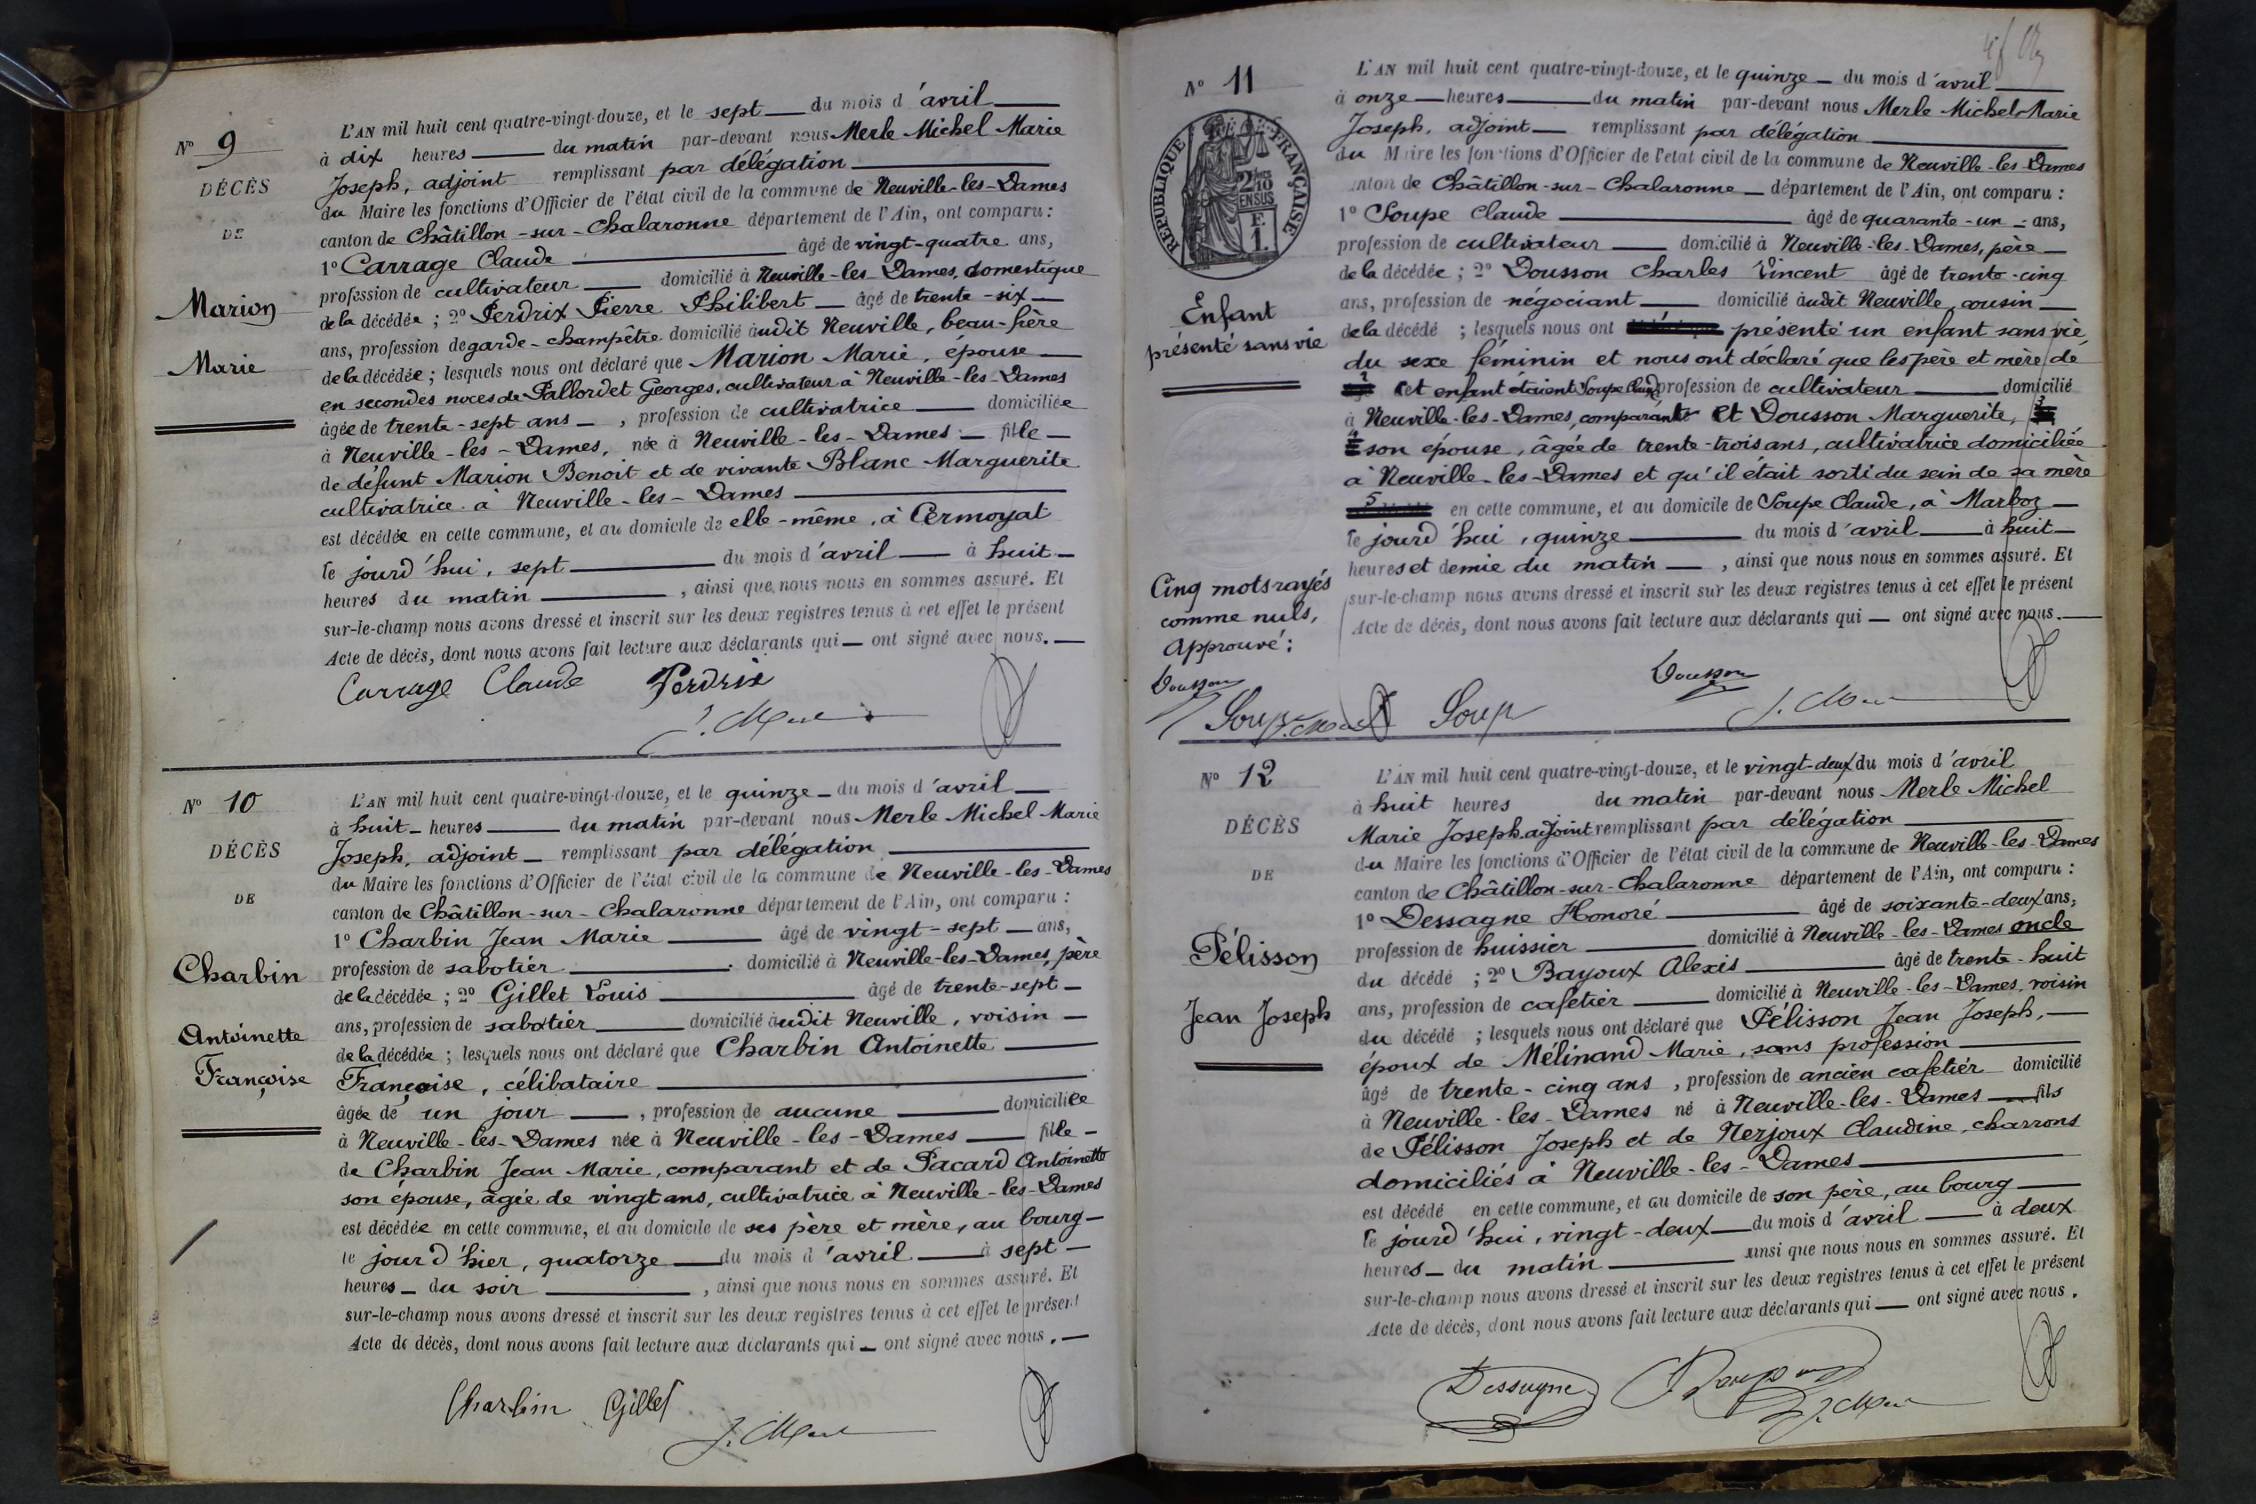 N° 9
DÉCÈS
DE
Marion
Marie
L'AN mil huit cent quatre-vingt-douze, et le sept du mois d'avril
à dix heures du matin par-devant nous Merle Michel Marie
Joseph, adjoint remplissant par délégation
du Maire les fonctions d'Officier de l'état civil de la commune de Neuville-les-Dames
canton de Châtillon-sur-Chalaronne département de l'Ain, ont comparu :
1° Carrage Claude âgé de vingt-quatre ans,
profession de cultivateur domicilié à Neuville-les Dames, domestique
de la décédée ; 2° Perdrix Pierre Philibert âgé de trente-six
ans, profession de garde-champêtre domicilié àudit Neuville, beau-frère
de la décédée ; lesquels nous ont déclaré que Marion Marie, épouse
en secondes noces de Pallordet Georges, cultivateur à Neuville-les-Dames
âgée de trente-sept ans, profession de cultivatrice domiciliée
à Neuville-les-Dames, née à Neuville-les-Dames fille
de défunt Marion Benoit et de vivante Blanc Marguerite
cultivatrice à Neuville-les-Dames
est décédée en cette commune, et au domicile de elle-même, à Cermoyat
le jourd'hui, sept du mois d'avril à huit
heures du matin, ainsi que nous nous en sommes assuré. Et
sur-le-champ nous avons dressé et inscrit sur les deux registres tenus à cet effet le présent
Acte de décès, dont nous avons fait lecture aux déclarants qui ont signé avec nous.
Carrage Claude Perdrix
J. Merle
N° 10
DÉCÈS
DE
Charbin
Antoinette
Françoise
L'AN mil huit cent quatre-vingt-douze, et le quinze du mois d'avril
à huit heures du matin par-devant nous Merle Michel Marie
Joseph, adjoint remplissant par délégation
du Maire les fonctions d'Officier de l'état civil de la commune de Neuville-les-Dames
canton de Châtillon-sur-Chalaronne département de l'Ain, ont comparu :
1° Charbin Jean Marie âgé de vingt-sept ans,
profession de sabotier domicilié à Neuville-les-Dames, père
de la décédée ; 2° Gillet Louis âgé de trente-sept
ans, profession de sabotier domicilié àudit Neuville, voisin
de la décédée ; lesquels nous ont déclaré que Charbin Antoinette
Françoise, célibataire
âgée de un jour, profession de aucune domiciliée
à Neuville-les-Dames née à Neuville-les-Dames fille
de Charbin Jean Marie, comparant et de Pacard Antoinette
son épouse, âgée de vingt ans, cultivatrice à Neuville-les-Dames
est décédée en cette commune, et au domicile de ses père et mère, au bourg
le jour d'hier, quatorze du mois d'avril à sept
heures du soir, ainsi que nous nous en sommes assuré. Et
sur-le-champ nous avons dressé et inscrit sur les deux registres tenus à cet effet le présent
Acte de décès, dont nous avons fait lecture aux déclarants qui ont signé avec nous.
Charbin Gillet
J. Merle
N° 11
RÉPUBLIQUE FRANÇAISE
2/10 EN SUS
F.
1.
Enfant
présenté sans vie
L'AN mil huit cent quatre-vingt-douze, et le quinze du mois d'avril
à onze heures du matin par-devant nous Merle Michel-Marie
Joseph, adjoint remplissant par délégation
du Maire les fonctions d'Officier de l'etat civil de la commune de Neuville-les-Dames
canton de Châtillon-sur-Chalaronne département de l'Ain, ont comparu :
1° Soupe Claude âgé de quarante-un ans,
profession de cultivateur domicilié à Neuville-les-Dames, père
de la décédée ; 2° Dousson Charles Vincent âgé de trente-cinq
ans, profession de négociant domicilié àudit Neuville, cousin
de la décédé ; lesquels nous ont présenté un enfant sans vie,
du sexe féminin et nous ont déclaré que les père et mère de
cet enfant étaient Soupe Claude profession de cultivateur domicilié
à Neuville-les-Dames, comparant et Dousson Marguerite,
son épouse, âgée de trente-trois ans, cultivatrice domiciliée
à Neuville-les-Dames et qu'il était sorti du sein de sa mère
5 en cette commune, et au domicile de Soupe Claude, à Marboz
le jourd'hui, quinze du mois d'avril à huit
heures et demie du matin, ainsi que nous nous en sommes assuré. Et
sur-le-champ nous avons dressé et inscrit sur les deux registres tenus à cet effet le présent
Acte de décès, dont nous avons fait lecture aux déclarants qui ont signé avec nous.
Cinq mots rayés
comme nuls,
Approuvé :
Dousson
Soupe J. Merle Soupe Dousson J. Merle
N° 12
DÉCÈS
DE
Pélisson
Jean Joseph
L'AN mil huit cent quatre-vingt-douze, et le vingt-deux du mois d'avril
à huit heures du matin par-devant nous Merle Michel
Marie Joseph, adjoint remplissant par délégation
du Maire les fonctions d'Officier de l'état civil de la commune de Neuville-les-Dames
canton de Châtillon-sur-Chalaronne département de l'Ain, ont comparu :
1° Dessagne Honoré âgé de soixante-deux ans,
profession de huissier domicilié à Neuville-les-Dames oncle
du décédé ; 2° Bayoux Alexis âgé de trente-huit
ans, profession de cafetier domicilié à Neuville-les-Dames, voisin
du décédé ; lesquels nous ont déclaré que Pélisson Jean Joseph,
époux de Mélinand Marie, sans profession
âgé de trente-cinq ans, profession de ancien cafetier domicilié
à Neuville-les-Dames né à Neuville-les-Dames fils
de Pélisson Joseph et de Nerjoux Claudine, charrons
domiciliés à Neuville-les-Dames
est décédé en cette commune, et au domicile de son père, au bourg
le jourd'hui, vingt-deux du mois d'avril à deux
heures du matin ainsi que nous nous en sommes assuré. Et
sur-le-champ nous avons dressé et inscrit sur les deux registres tenus à cet effet le présent
Acte de décès, dont nous avons fait lecture aux déclarants qui ont signé avec nous.
Dessagne
J. Merle